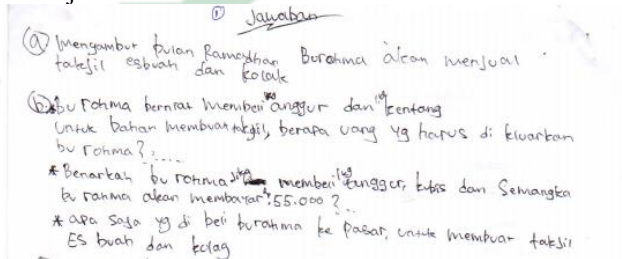 ① Jawaban
ⓐ Mengambut bulan Ramadhan Burohma akan menjual
takjil esbuah dan kolak
ⓑ bu rohma berniat membeli 1kg anggur dan 1kg kentang
untuk bahan membuat takjil, berapa uang yg harus di kluarkan
bu rohma?.....
* Benarkah bu rohma jika membeli 1kg anggur, kubis dan Semangka
bu rahma akan membayar 55.000?..
* apa saja yg di beli burahma ke pasar, untuk membuat takjil
Es buah dan kolag